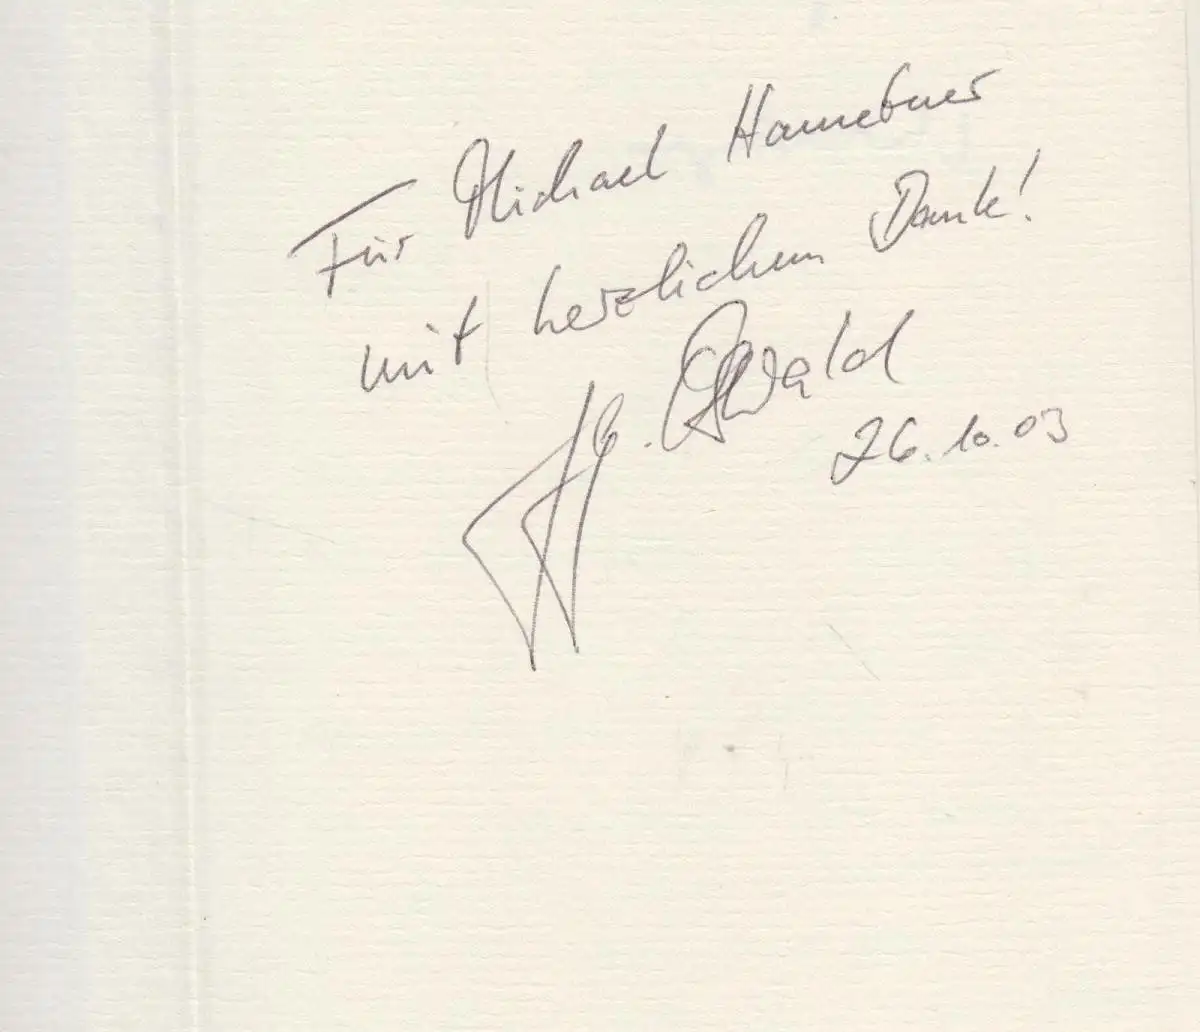 Für Michael
mit herzlichem Dank!
26.10.03